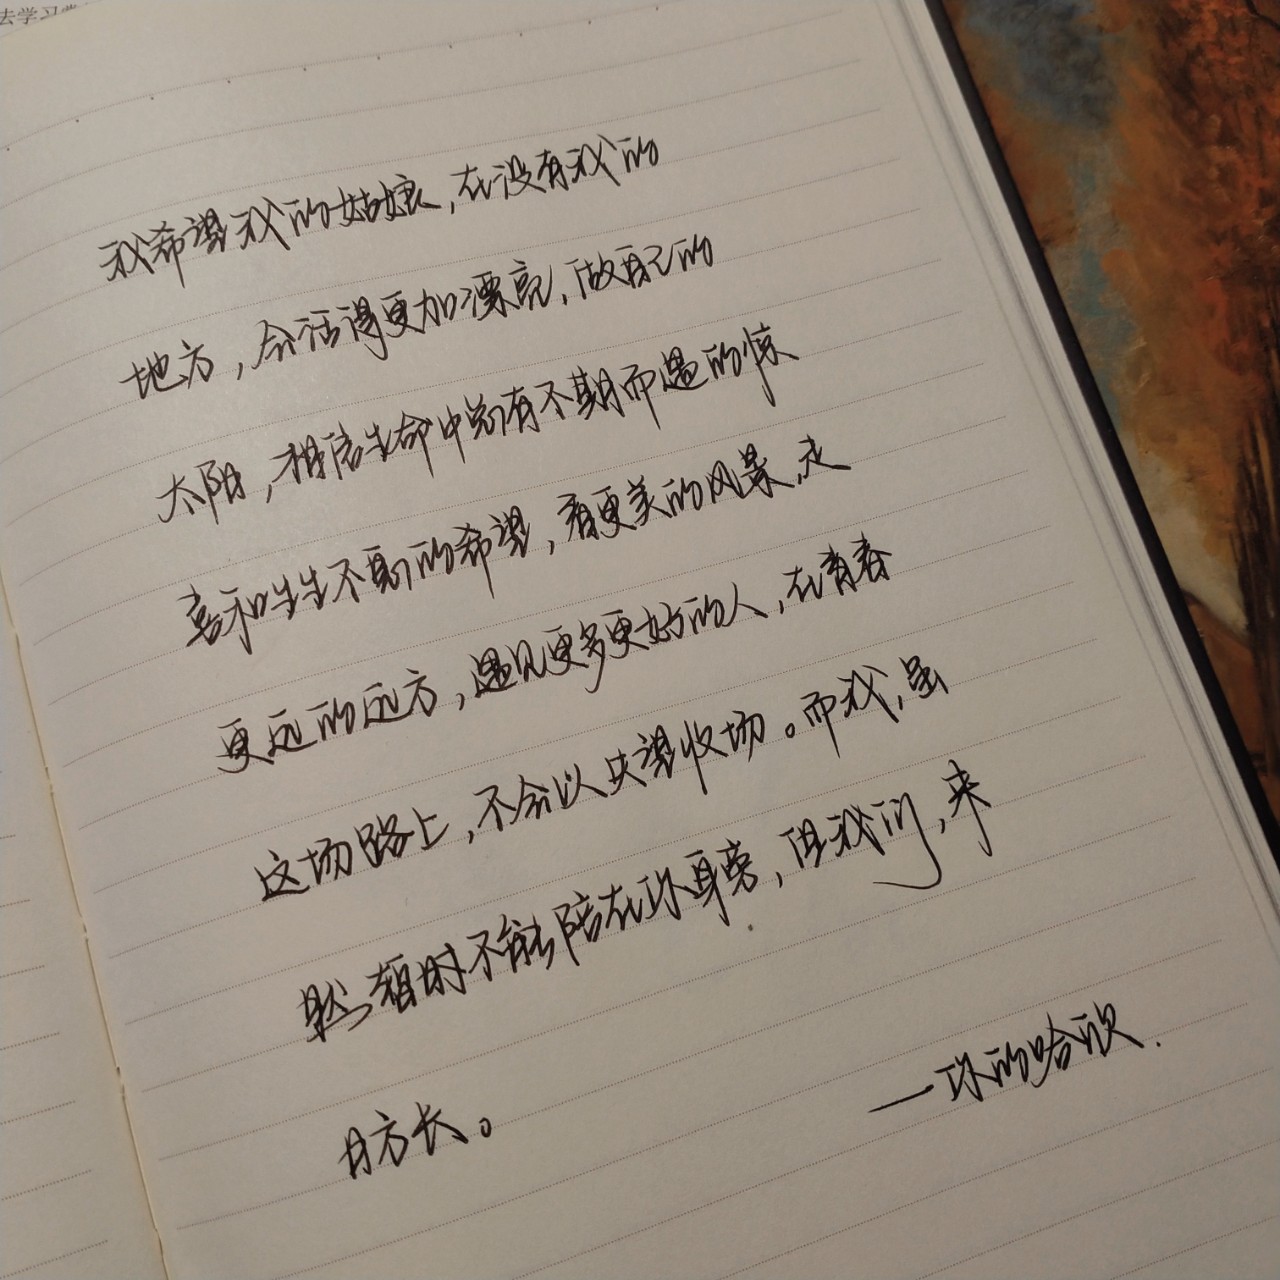 去学习
我希望我的姑娘,在没有我的
地方,会活得更加漂亮,做自己的
太阳,相信生命中总有不期而遇的惊
喜和生生不息的希望,看更美的风景,走
更远的远方,遇见更多更好的人,在青春
这场路上,不会以失望收场。而我,虽
然暂时不能陪在你身旁,但我们,来
日方长。
一你的哈欣.